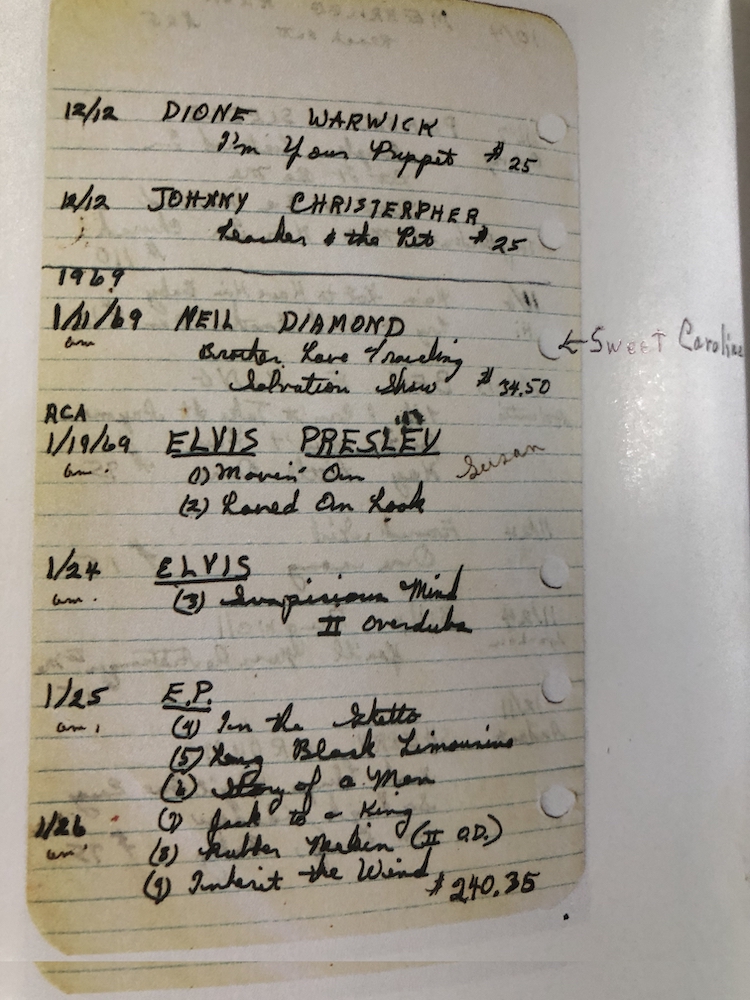 12/12 DIONE WARWICK
I'm Your Puppet $25
12/12 JOHNNY CHRISTERPHER
Teacher & the Pet $25
1969
1/11/69 NEIL DIAMOND
am
Brother Love Traveling
Salvation Show $34.50
← Sweet Caroline
RCA
1/19/69 ELVIS PRESLEY
am.
(1) Movin' On
Susan
(2) Loved On Look
1/24 ELVIS
am.
(3) Suspicious Mind
II Overdubs
1/25 E.P.
am.
(4) In the Ghetto
(5) Long Black Limousine
(6) Story of a Man
(7) Jack to a King
1/26
am
(8) Rubber (II O.D.)
(9) Inherit the Wind
$240.35